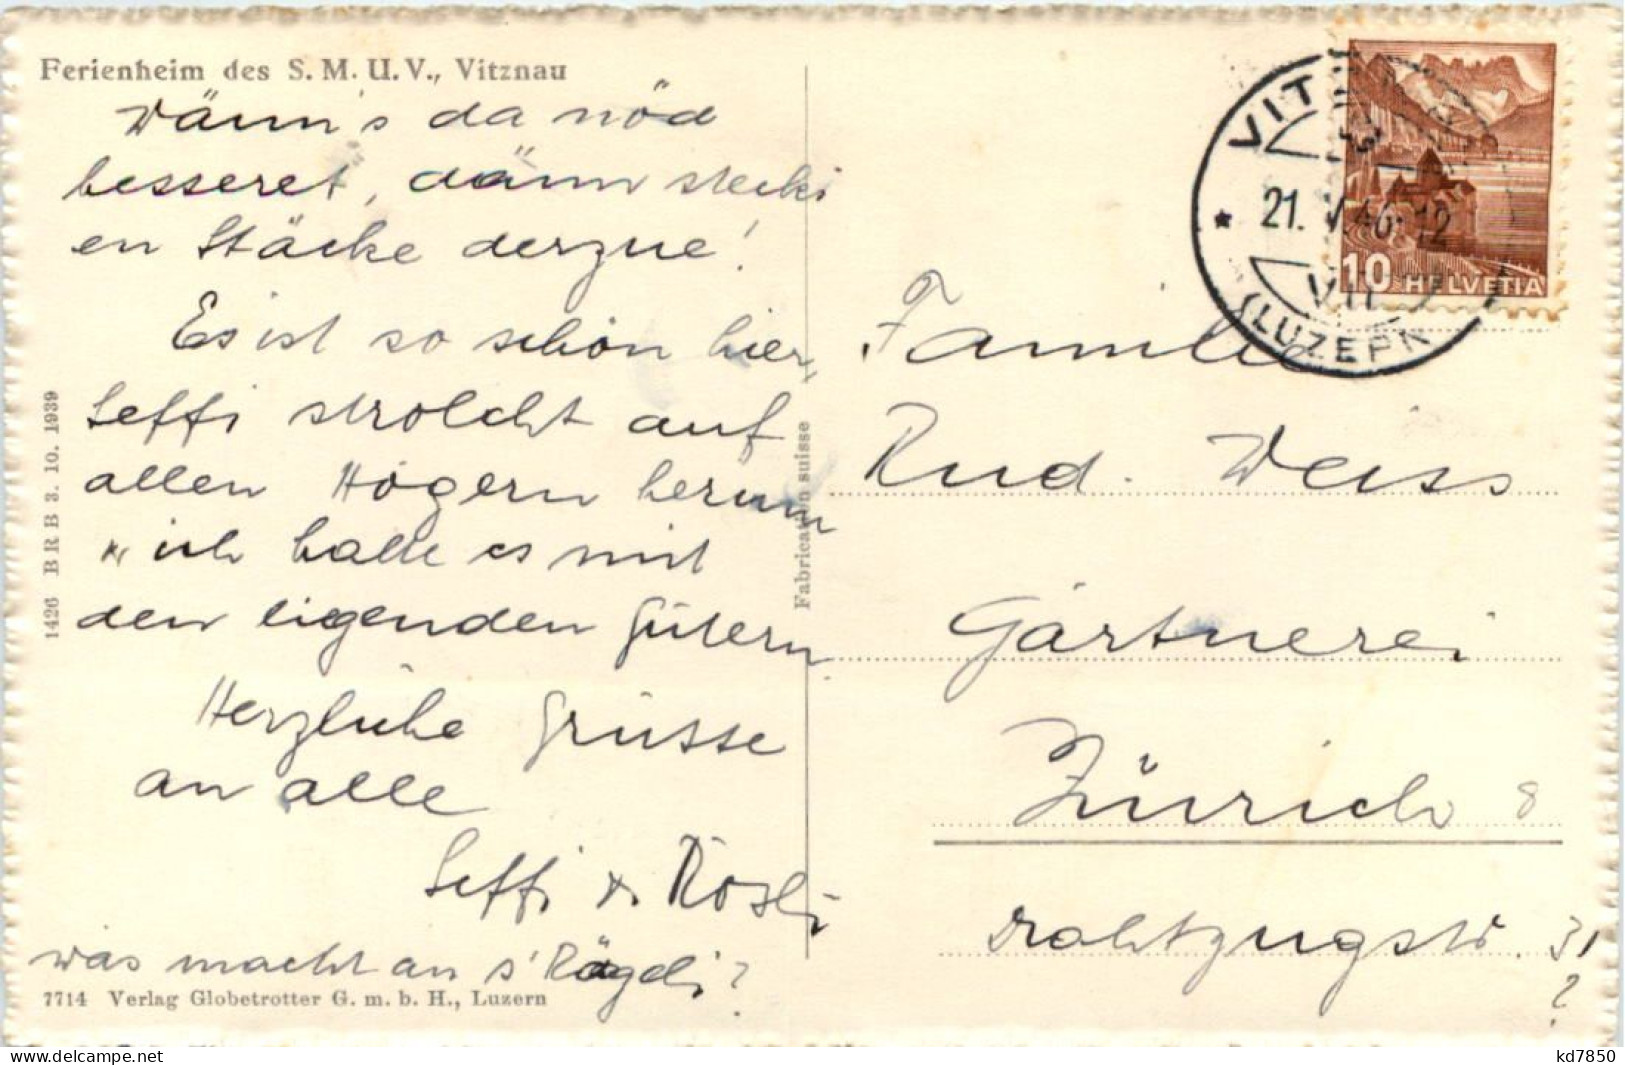 Ferienheim des S. M. U. V., Vitznau
Wänn's da nöd
besseret, dänn stecki
en Stäcke derzue!
Es ist so schön hier,
Seffi strolcht auf
allen Högern herum
ich halte es mit
den ligenden Gütern
Herzliche Grüsse
an alle
Seffi & Rösli
was macht an s'Rägeli?
7714 Verlag Globetrotter G. m. b. H., Luzern
1426 B R B 3. 10. 1939
Fabrication suisse
VIT
21. V. 46. 12
(LUZERN
10 HELVETIA
Familie
Rud. Weiss
Gärtnerei
Zürich 8
31
?
kd7850